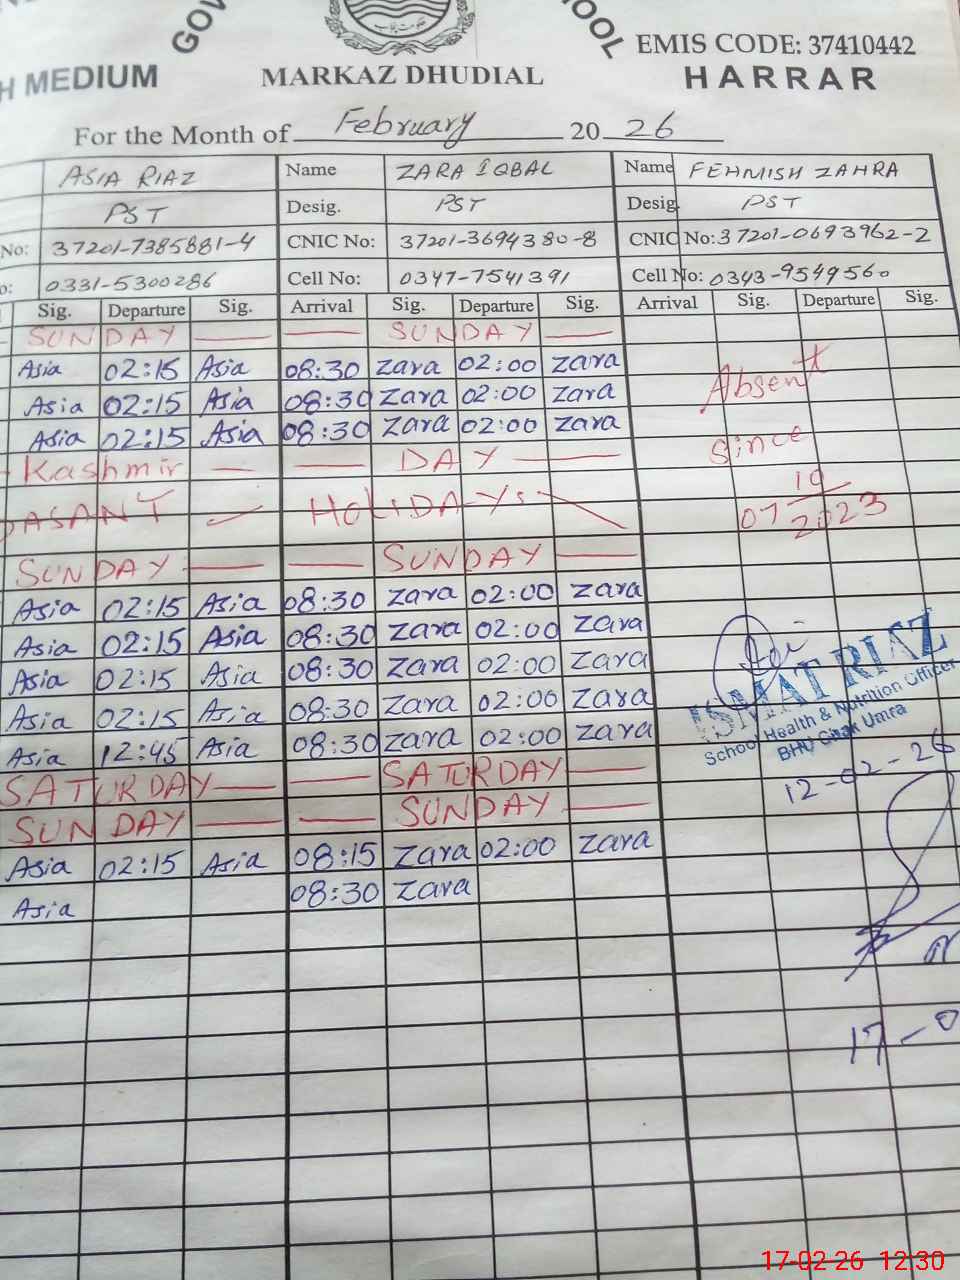 GOV
OOL EMIS CODE: 37410442
H MEDIUM MARKAZ DHUDIAL HARRAR
For the Month of February 2026
ASIA RIAZ Name ZARA IQBAL Name FEHMISH ZAHRA
PST Desig. PST Desig. PST
No: 37201-7385881-4 CNIC No: 37201-3694380-8 CNIC No: 37201-0693962-2
o: 0331-5300286 Cell No: 0347-7541391 Cell No: 0343-9549560
Sig. Departure Sig. Arrival Sig. Departure Sig. Arrival Sig. Departure Sig.
SUNDAY — — SUNDAY —
Asia 02:15 Asia 08:30 Zara 02:00 Zara
Asia 02:15 Asia 08:30 Zara 02:00 Zara Absent
Asia 02:15 Asia 08:30 Zara 02:00 Zara
Kashmir — — DAY — Since
BASANT HOLIDAYS 10
07 2023
SUNDAY — — SUNDAY —
Asia 02:15 Asia 08:30 Zara 02:00 Zara
Asia 02:15 Asia 08:30 Zara 02:00 Zara
Asia 02:15 Asia 08:30 Zara 02:00 Zara
Asia 02:15 Asia 08:30 Zara 02:00 Zara
Asia 12:45 Asia 08:30 Zara 02:00 Zara
ISMAT RIAZ
School Health & Nutrition Officer
BHU Chak Umra
12-02-26
SATURDAY — — SATURDAY —
SUNDAY — — SUNDAY —
Asia 02:15 Asia 08:15 Zara 02:00 Zara
Asia 08:30 Zara
17-0
17-02-26 12:30